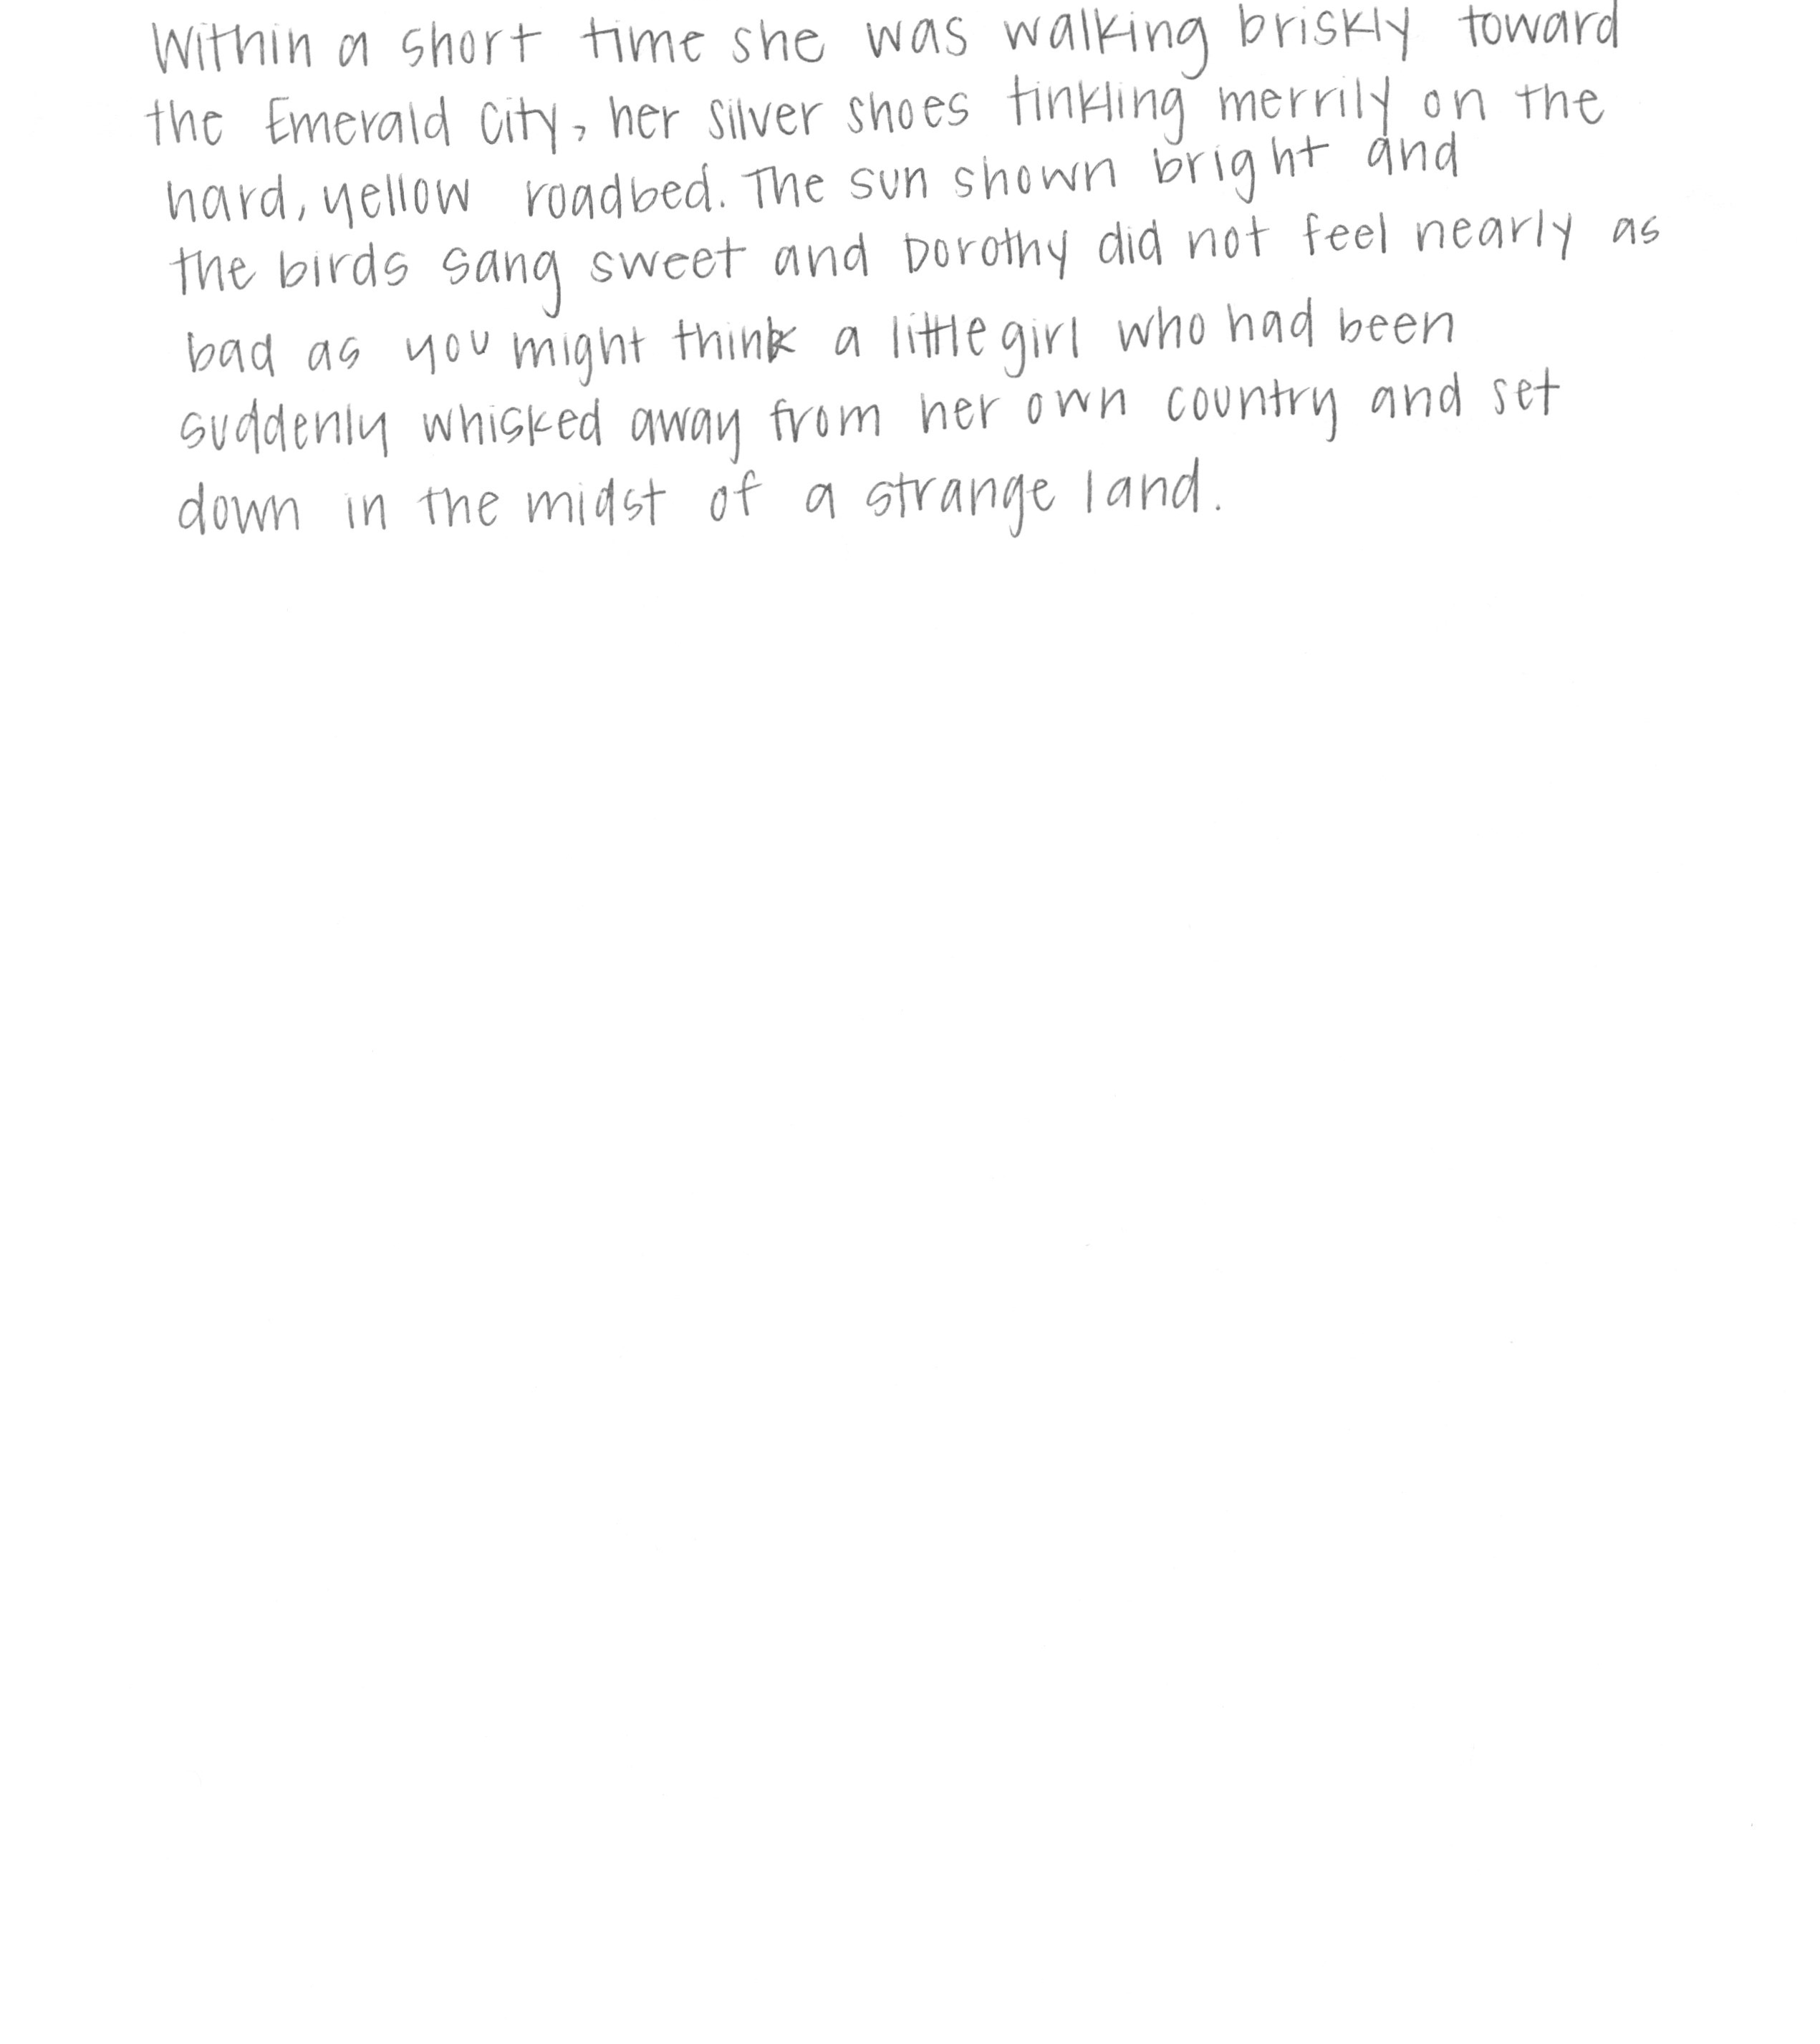 Within a short time she was walking briskly toward
the Emerald City, her silver shoes tinkling merrily on the
hard, yellow roadbed. The sun shown bright and
the birds sang sweet and Dorothy did not feel nearly as
bad as you might think a little girl who had been
suddenly whisked away from her own country and set
down in the midst of a strange land.